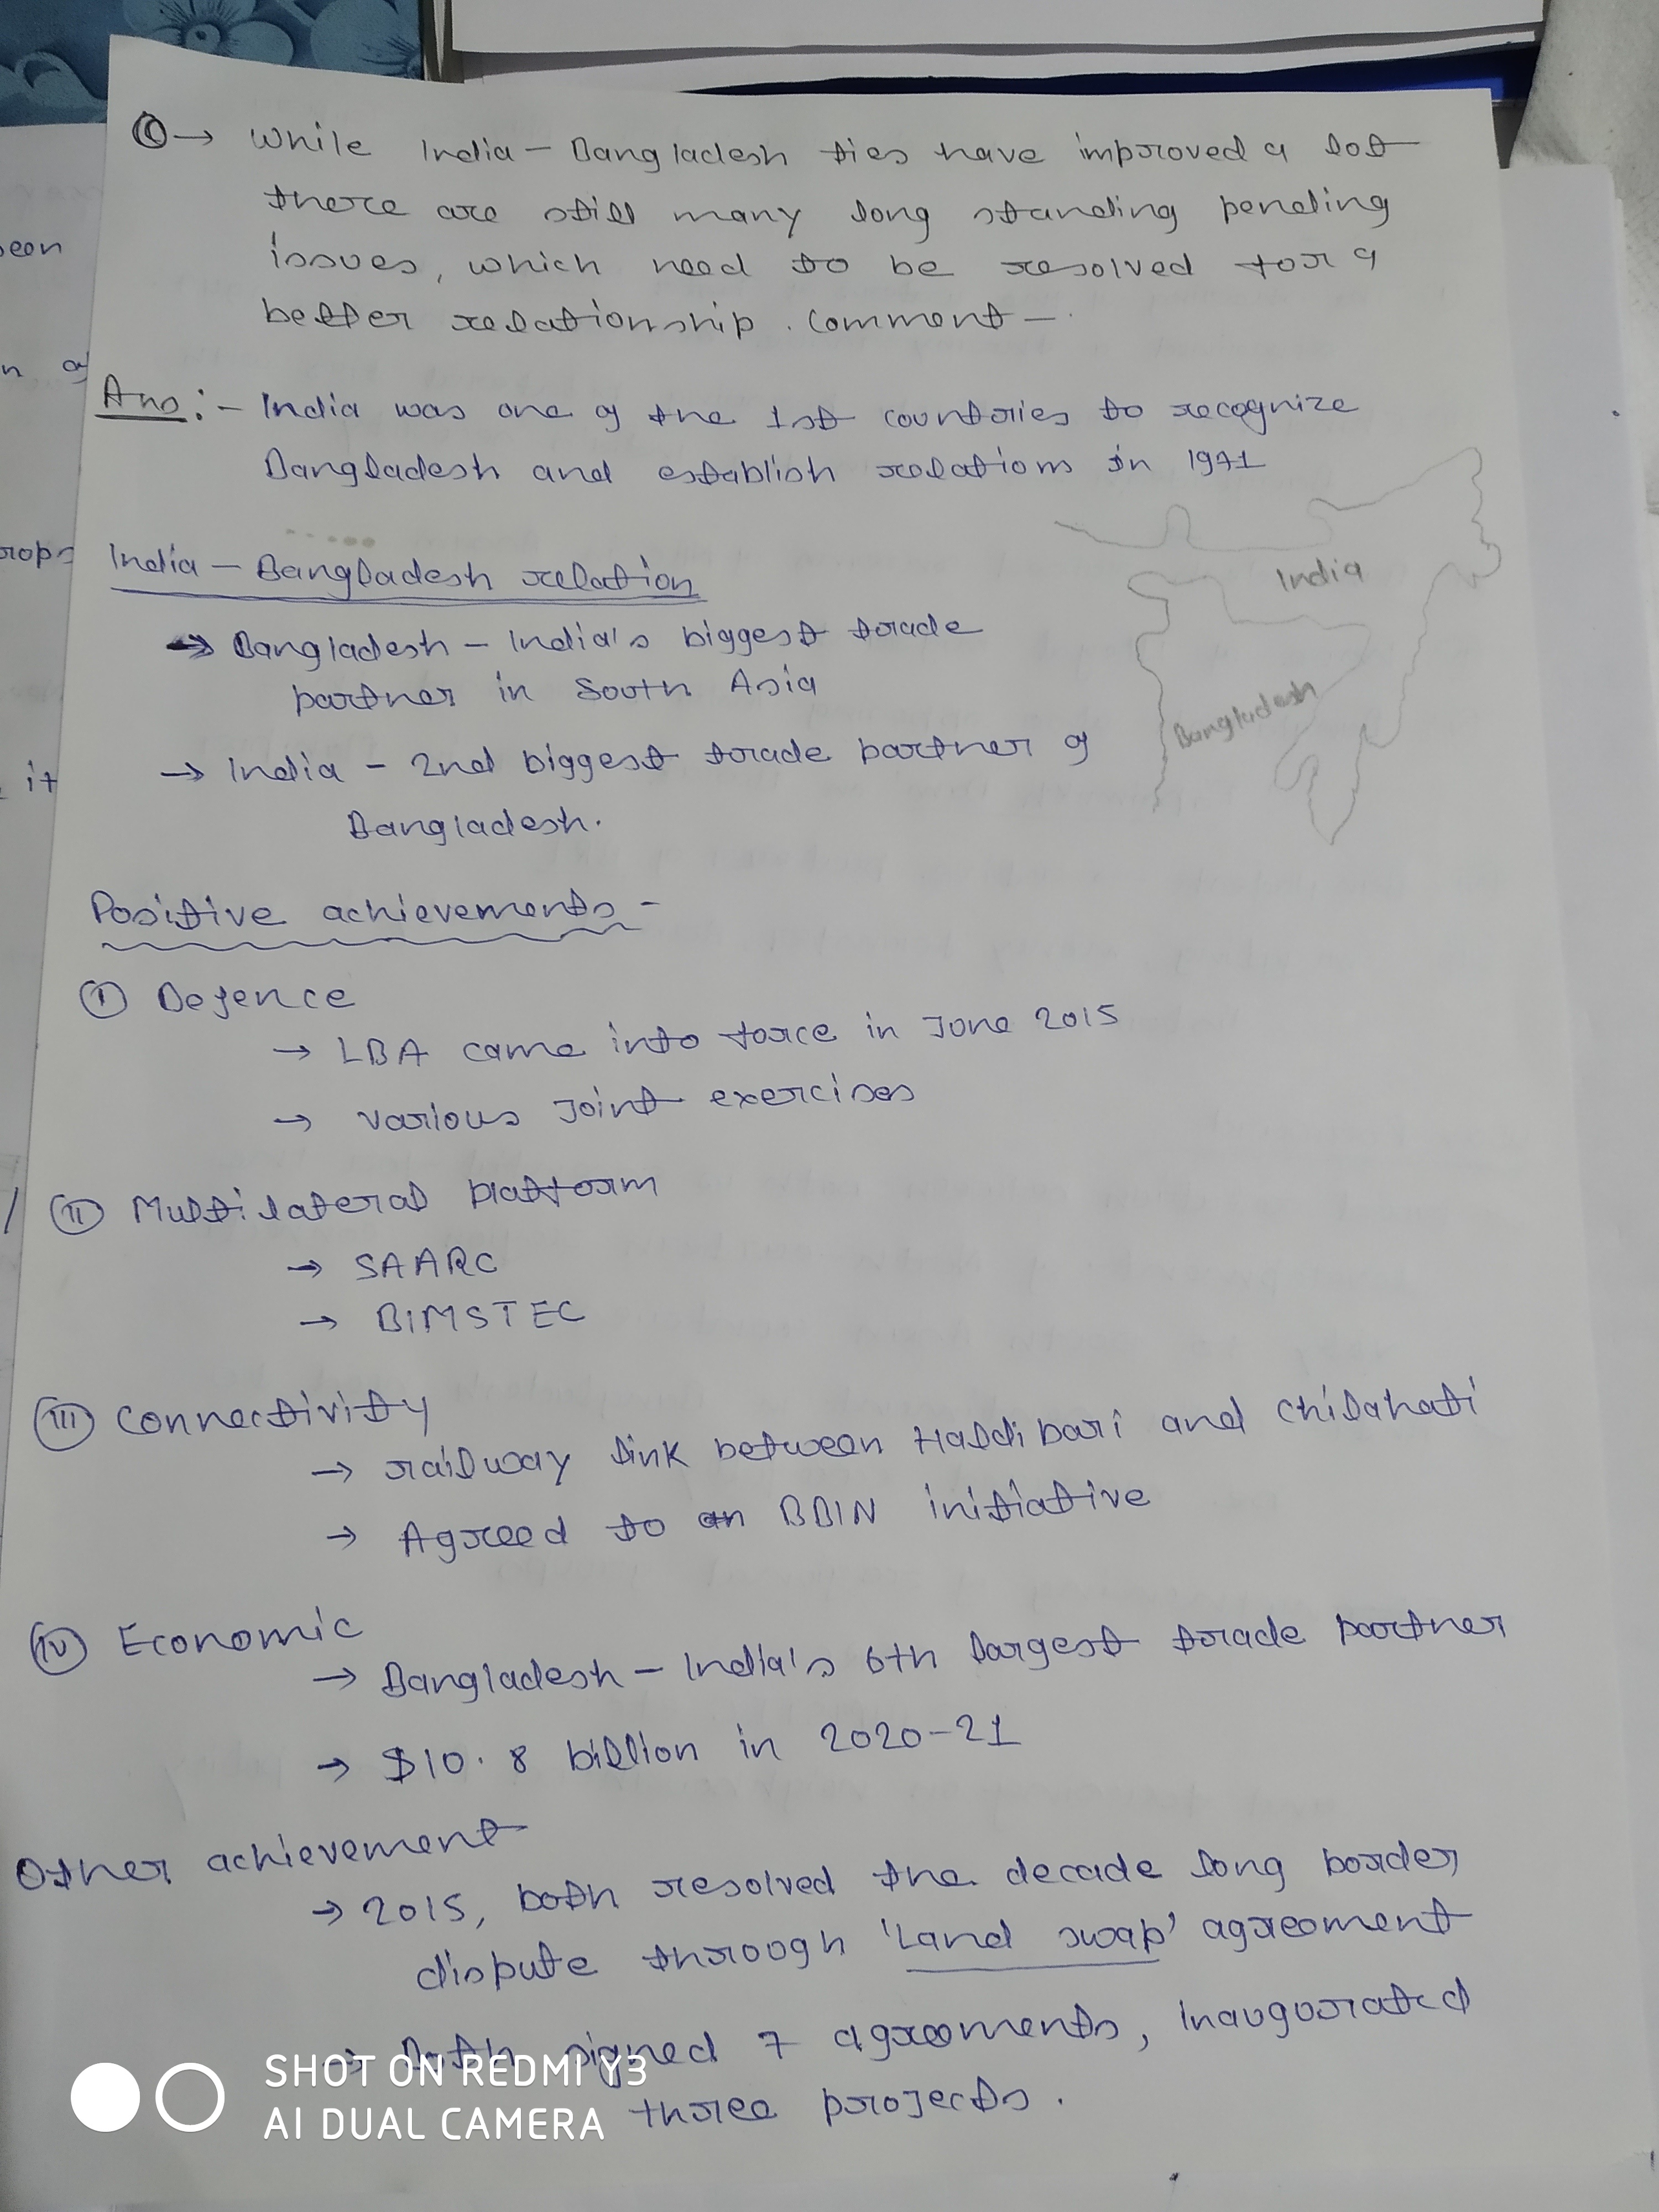 Q → While India - Bangladesh ties have improved a lot
there are still many long standing pending
issues, which need to be resolved for a
better relationship. Comment -
Ans :- India was one of the 1st countries to recognize
Bangladesh and establish relations in 1971
India - Bangladesh relation
→ Bangladesh - India's biggest trade
partner in South Asia
→ India - 2nd biggest trade partner of
Bangladesh.
India
Bangladesh
Positive achievements -
(I) Defence
→ LBA came into force in June 2015
→ various Joint exercises
(II) Multilateral platform
→ SAARC
→ BIMSTEC
(III) Connectivity
→ railway link between Haldibari and Chilahati
→ Agreed to an BBIN initiative
(IV) Economic
→ Bangladesh - India's 6th largest trade partner
→ $10.8 billion in 2020-21
Other achievement
→ 2015, both resolved the decade long border
dispute through 'Land swap' agreement
→ Both signed 7 agreements, inaugurated
three projects.
it
SHOT ON REDMI Y3
AI DUAL CAMERA